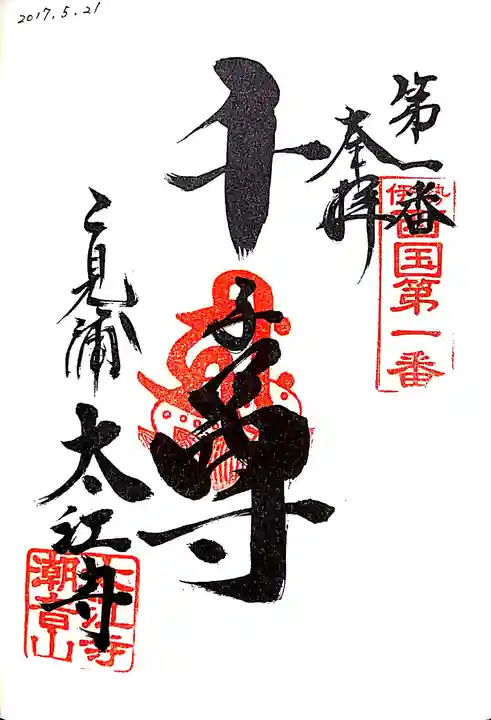 2017.5.21
第一番
奉拝
伊勢
西国第一番
千手尊
二見浦
太江寺
太江寺
潮音山